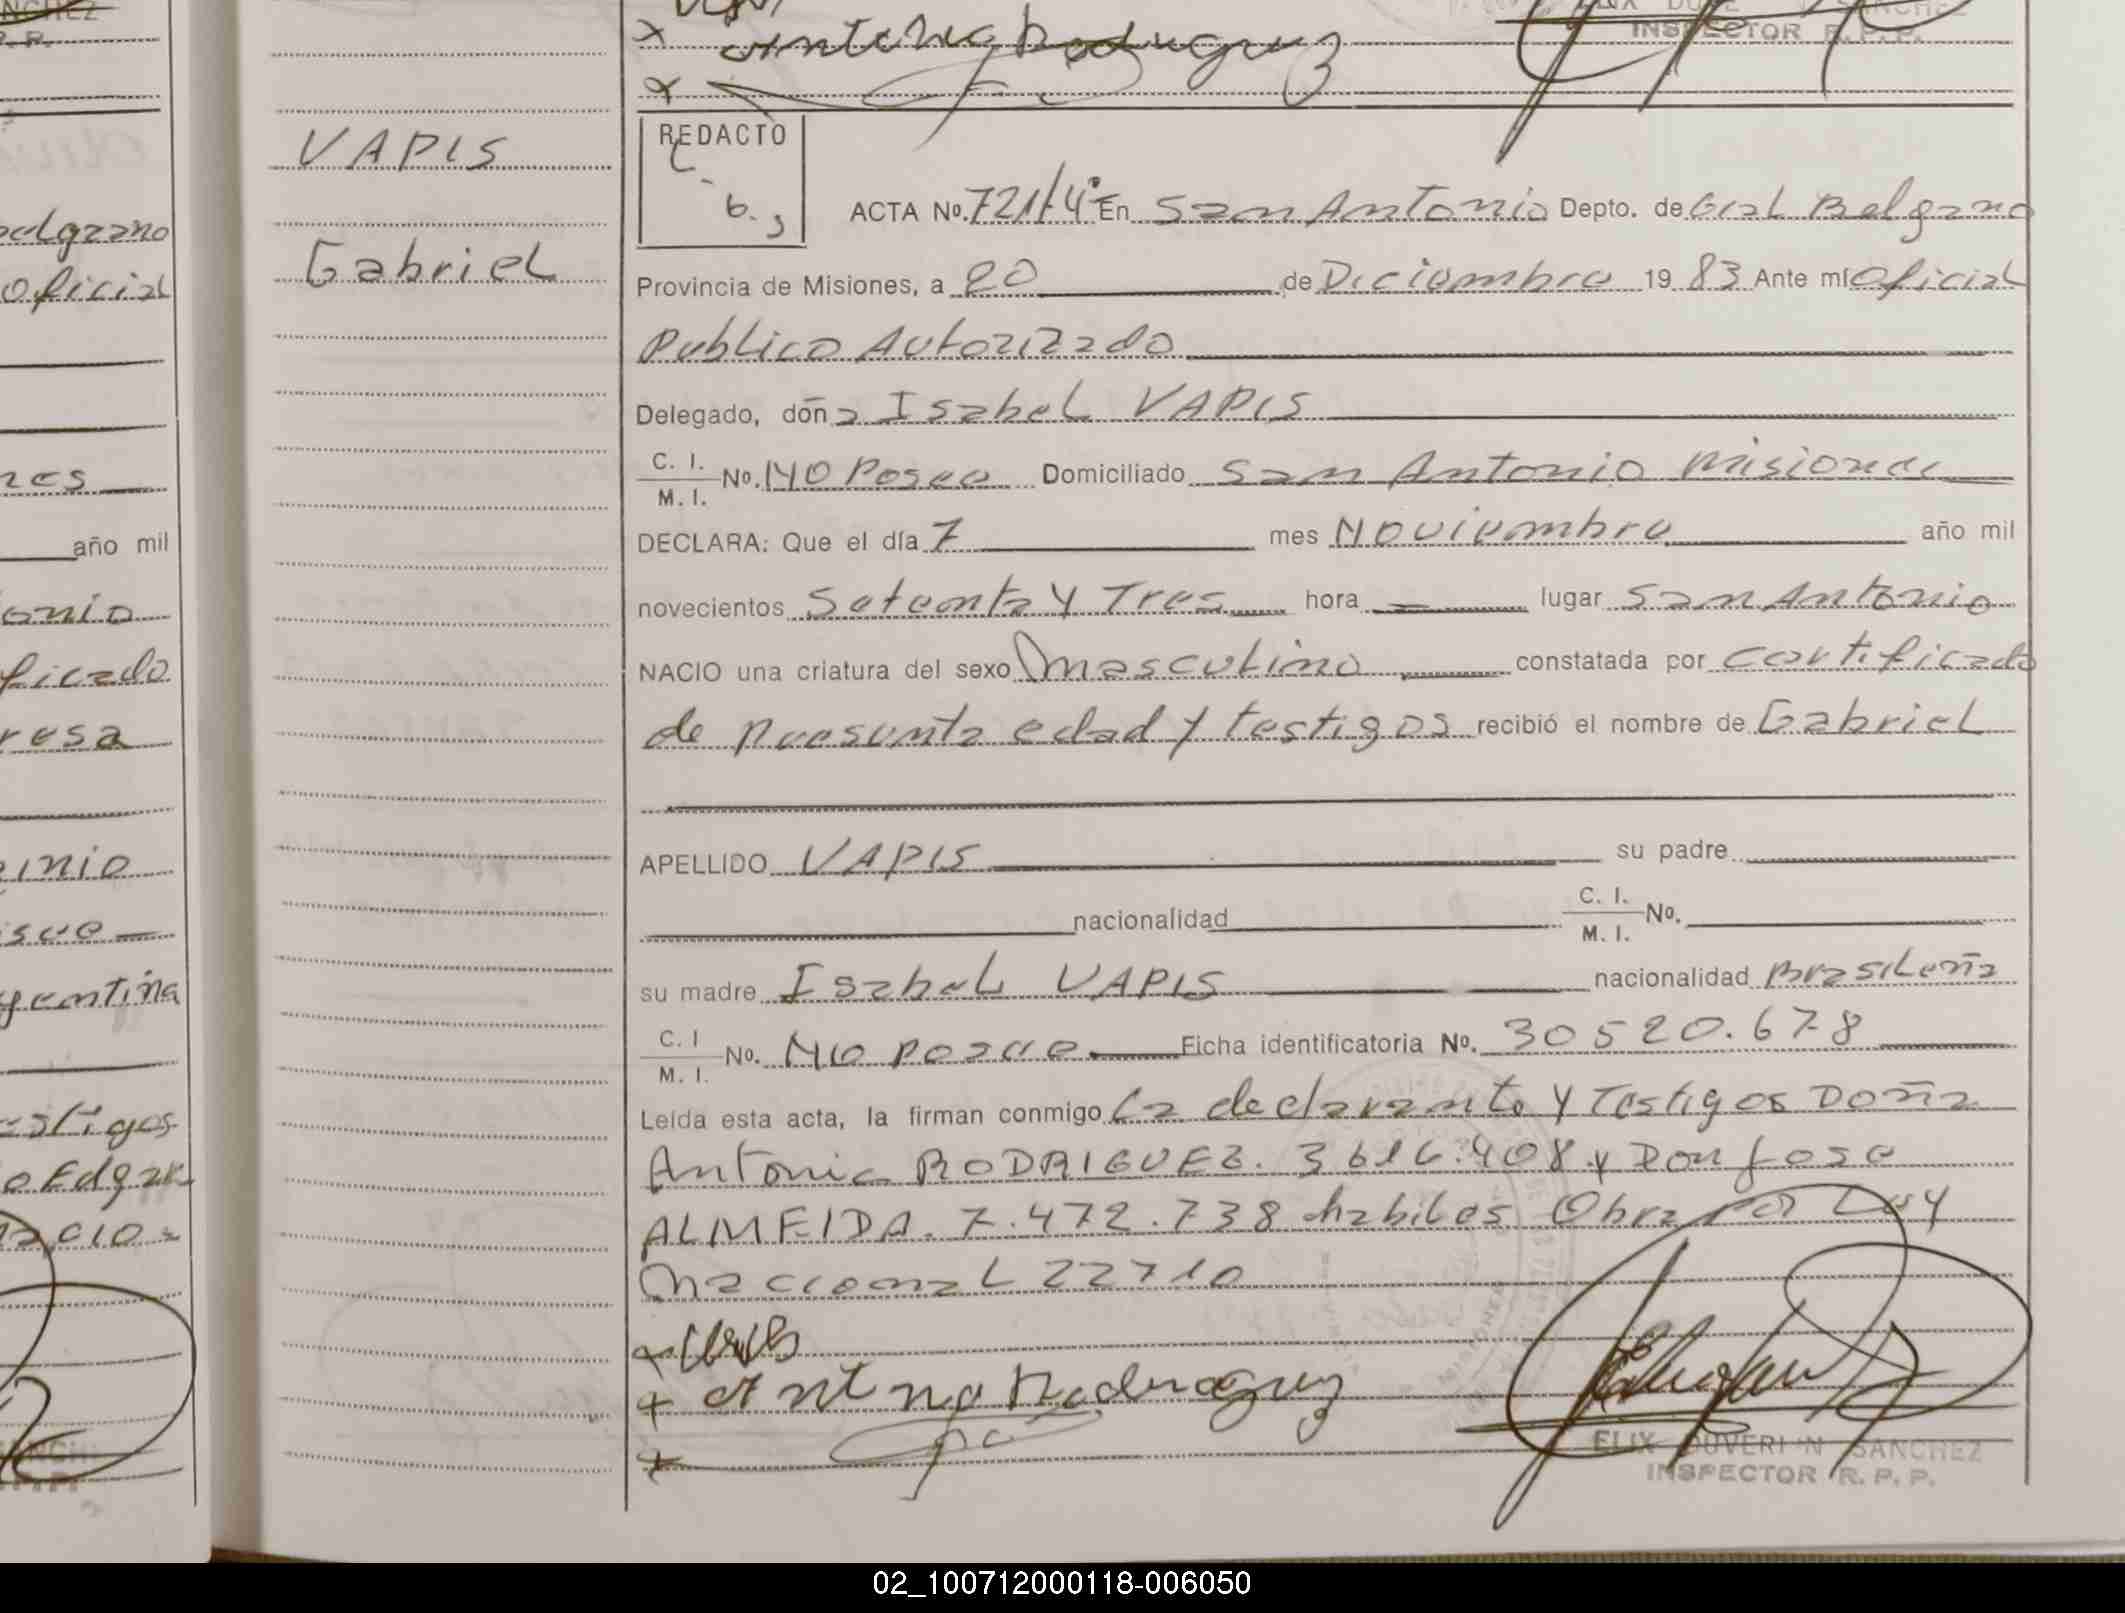 Antonia Rodriguez
INSPECTOR R. P. P.
VAPIS
Gabriel
REDACTO
ACTA No. 721/4° En San Antonio Depto. de Gral Belgrano
Provincia de Misiones, a 20 de Diciembre 1983 Ante mí Oficial
Publico Autorizado
Delegado, doña Isabel VAPIS
C. I.
M. I. No. NO Posee Domiciliado San Antonio Misiones
DECLARA: Que el día 7 mes Noviembre año mil
novecientos Setenta y Tres hora lugar San Antonio
NACIO una criatura del sexo Masculino constatada por certificado
de presunta edad y testigos recibió el nombre de Gabriel
APELLIDO VAPIS su padre
nacionalidad C. I.
M. I. No.
su madre Isabel VAPIS nacionalidad Brasileña
C. I
M. I. No. No posee Ficha identificatoria No. 30520.678
Leída esta acta, la firman conmigo La declarante y Testigos Doña
Antonia RODRIGUEZ. 3616.408 y Don Jose
ALMEIDA. 7.472.738 habiles Obra por Ley
Nacional 22710
Antonia Rodriguez
SANCHEZ
INSPECTOR R. P. P.
02_100712000118-006050